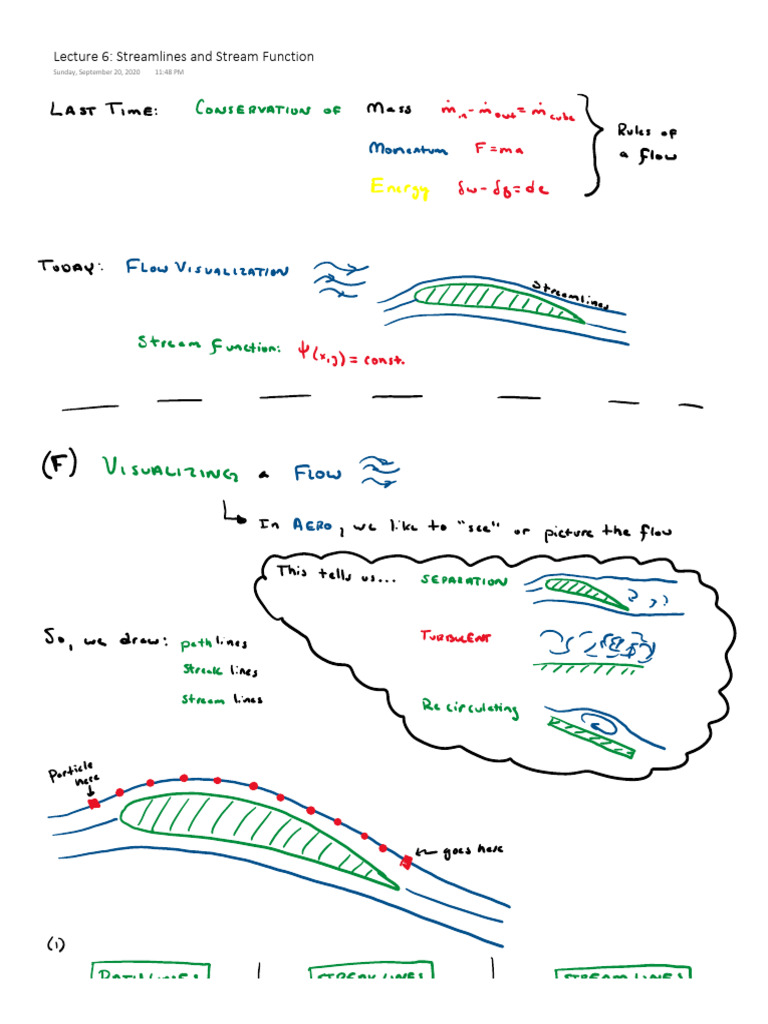 Lecture 6: Streamlines and Stream Function
Sunday, September 20, 2020 11:48 PM
LAST TIME: CONSERVATION OF Mass ṁin - ṁout = ṁcube
Momentum F = ma
Energy δw - δq = de
Rules of
a flow
TODAY: FLOW VISUALIZATION
Streamlines
Stream Function: Ψ(x,y) = const.
(F) VISUALIZING a FLOW
In AERO, we like to "see" or picture the flow
This tells us... SEPARATION
? ? ?
So, we draw: path lines
TURBULENT
Streak lines
Stream lines
Recirculating
Particle
here
goes here
(1)
PATHLINES | STREAKLINES | STREAMLINES